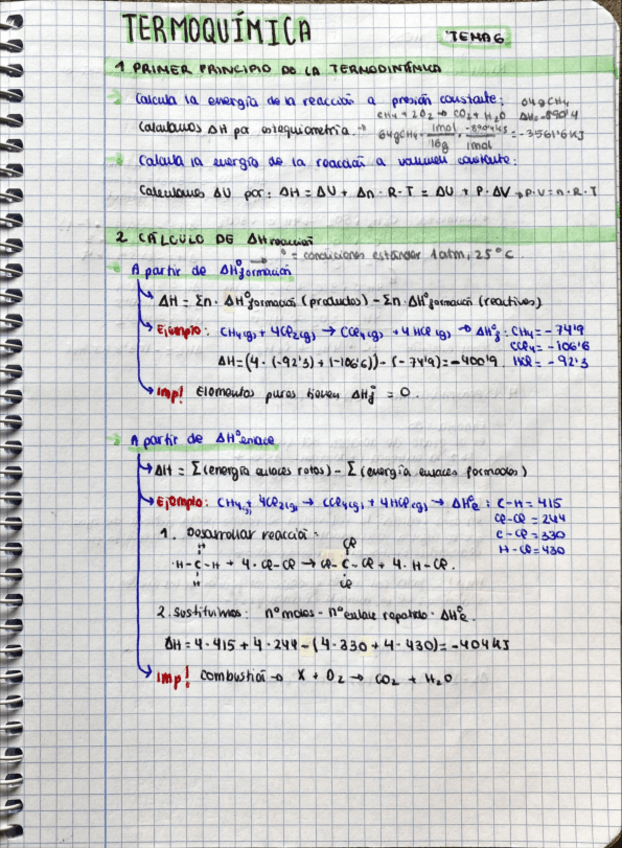 TERMOQUÍMICA
TEMA 6
1 PRIMER PRINCIPIO DE LA TERMODINÁMICA
Calcula la energía de la reacción a presión constante: 64g CH₄
CH₄ + 2O₂ → CO₂ + H₂O ΔH=-890'4
Calculamos ΔH por estequiometría. → 64gCH₄ · 1mol/16g · -890'4KJ/1mol = -3561'6KJ
Calcula la energía de la reacción a volumen constante:
Calculamos ΔU por: ΔH = ΔU + Δn · R · T = ΔU + P · ΔV → P·V = n·R·T
2 CÁLCULO DE ΔH reacción
→ ° = condiciones estándar 1atm, 25°C.
A partir de ΔH°formación
ΔH = Σn · ΔH°formación (productos) - Σn · ΔH°formación (reactivos)
Ejemplo: CH₄(g) + 4Cl₂(g) → CCl₄(g) + 4HCl(g) → ΔH°f : CH₄ = -74'9
CCl₄ = -106'6
ΔH = (4 · (-92'3) + (-106'6)) - (-74'9) = -400'9. HCl = -92'3
Imp! Elementos puros tienen ΔH°f = 0.
A partir de ΔH°enlace
ΔH = Σ(energía enlaces rotos) - Σ(energía enlaces formados)
Ejemplo: CH₄(g) + 4Cl₂(g) → CCl₄(g) + 4HCl(g) → ΔH°e : C-H = 415
Cl-Cl = 244
C-Cl = 330
H-Cl = 430
1. Desarrollar reacción:
H Cl
H-C-H + 4 · Cl-Cl → Cl-C-Cl + 4 · H-Cl.
H Cl
2. Sustituimos: nº moles · nº enlace repetido · ΔH°e.
ΔH = 4·415 + 4·244 - (4·330 + 4·430) = -404KJ
Imp! Combustión → X + O₂ → CO₂ + H₂O